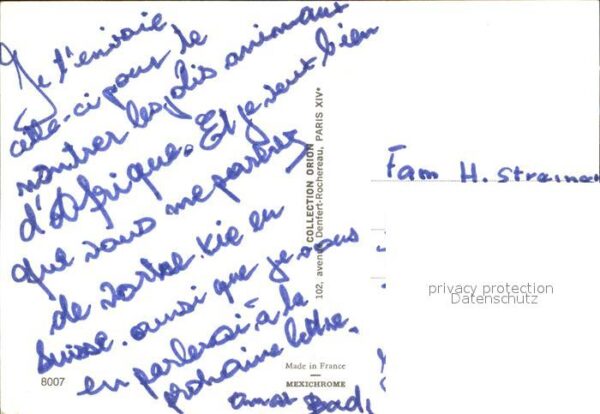 Je t'envoie
cette-ci pour te
montrer les jolis animaux
d'Afrique. Et je veut bien
que vous me parlez
de vie en
Suisse. ainsi que je vous
en parlerai à la
prochaine lettre.
8007
Made in France
MEXICHROME
COLLECTION ORION
102, avenue Denfert-Rochereau, PARIS XIVe
Fam H. Streiner
privacy protection
Datenschutz